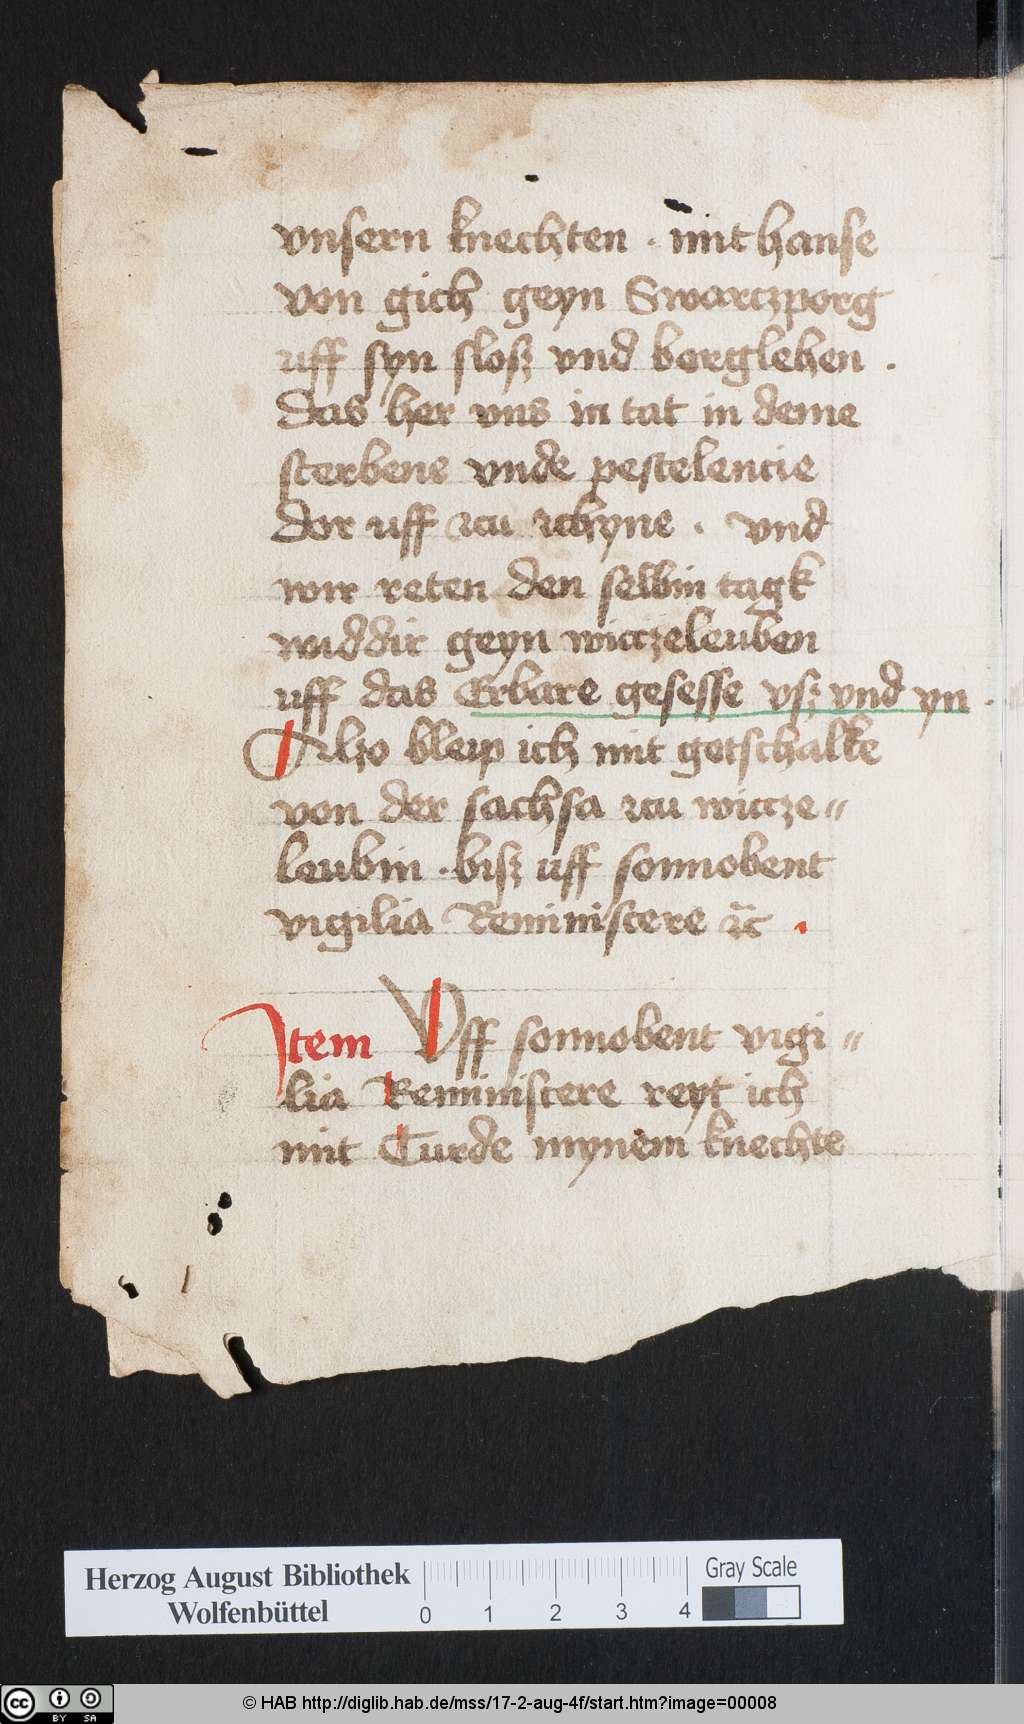 vnsern knechten . mit hanse
von gich geyn Swarczporg
uff syn slosz vnd borglehen .
Das her vns in tat in deme
sterbene vnde pestelencie
Dor uff zcu zchyne . vnd
wir reten den selbin tagk
widdir geyn witczeleuben
uff das Erbare gesesse vsz vnd yn .
Alzo bleip ich mit getschalke
von der sachsa zcu witcze=
leubin . bisz uff sonnobent
vigilia Reminiscere zc .
Item Vff sonnobent vigi=
lia Reminiscere reyt ich
mit Curde mynem knechte
Herzog August Bibliothek
Wolfenbüttel
0 1 2 3 4
Gray Scale
cc BY SA
© HAB http://diglib.hab.de/mss/17-2-aug-4f/start.htm?image=00008